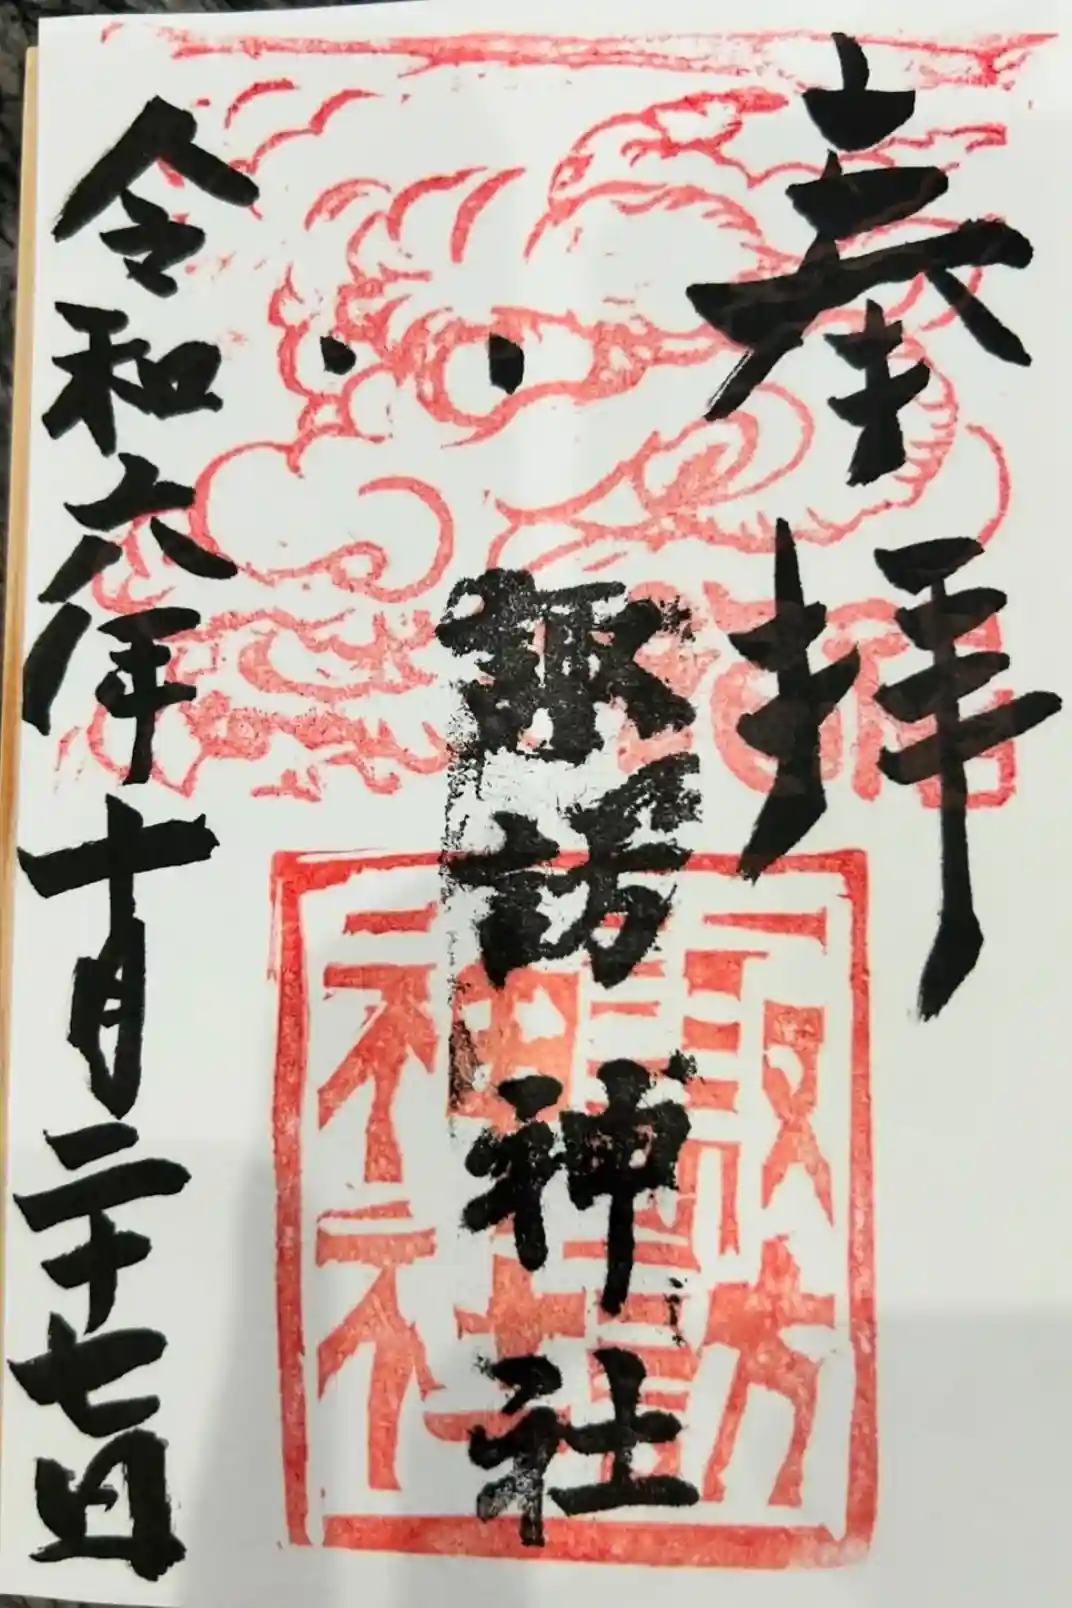 奉拝
諏訪神社
諏訪
神社
令和六年十月二十七日